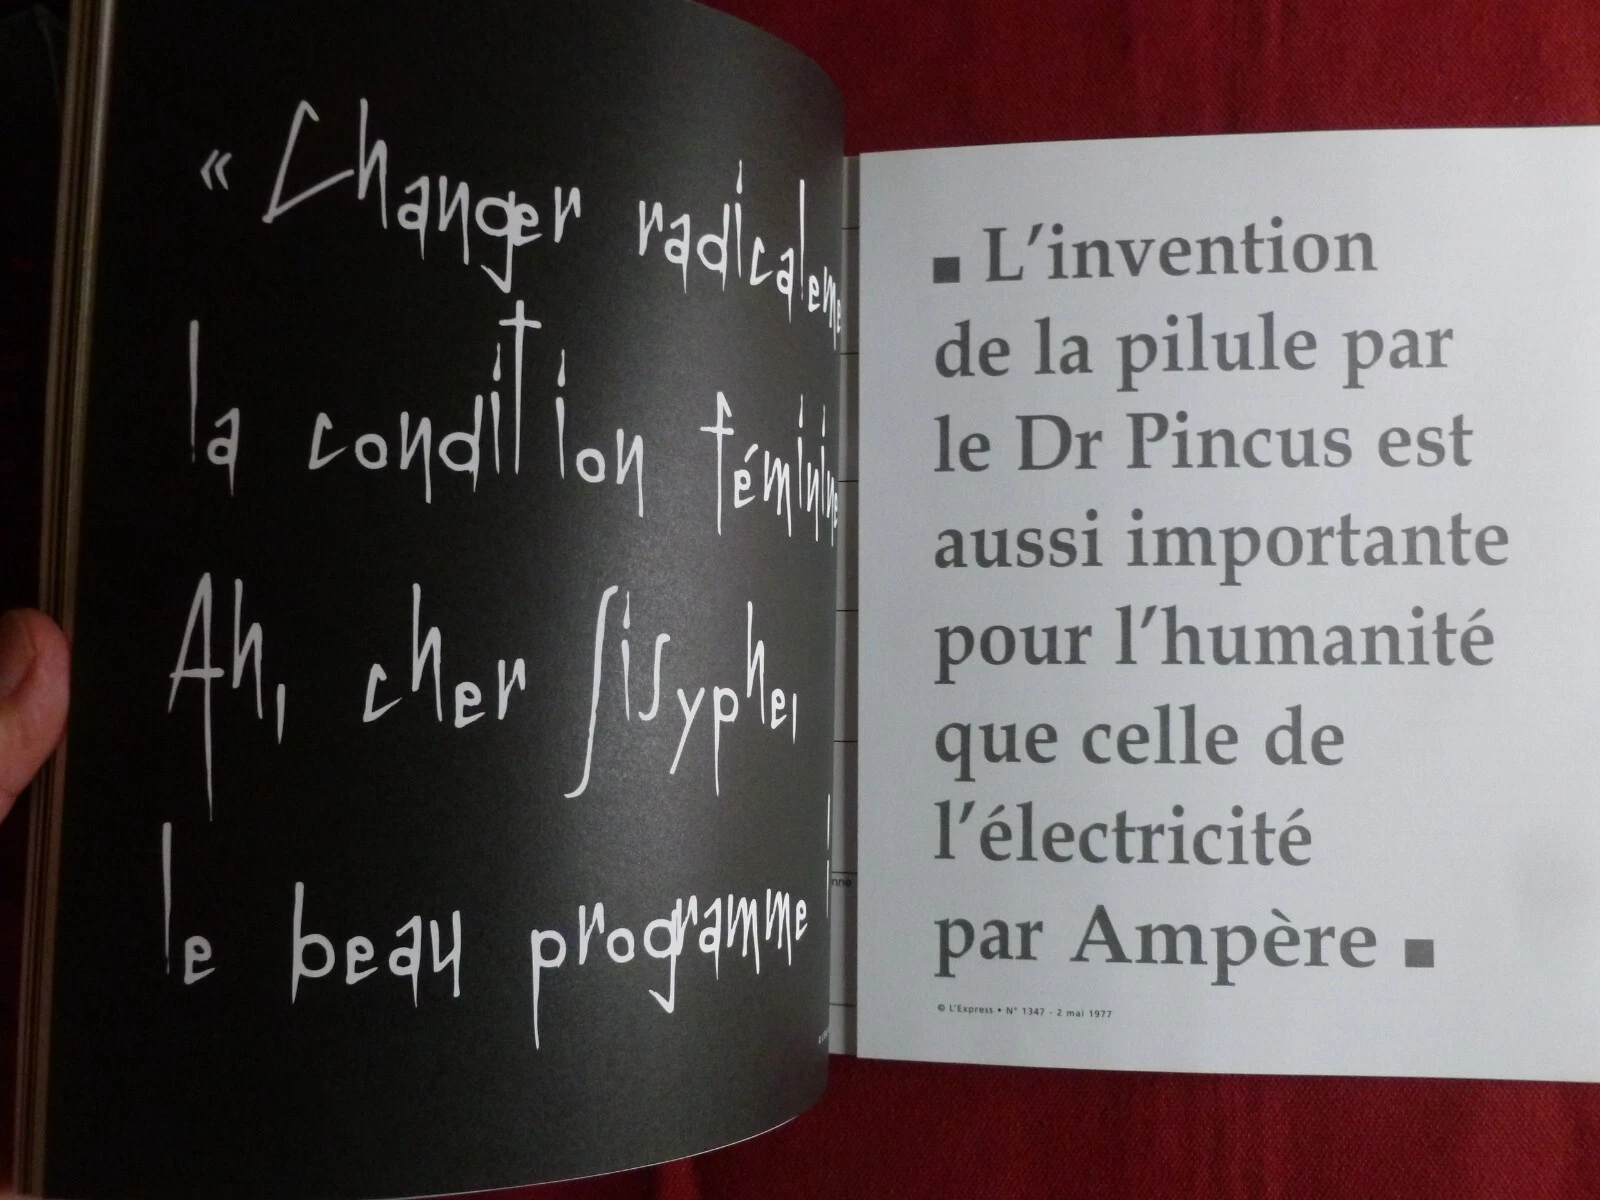 « Changer radicaleme
la condition féminine
Ah, cher Sisyphe,
le beau programme !
■ L'invention
de la pilule par
le Dr Pincus est
aussi importante
pour l'humanité
que celle de
l'électricité
par Ampère ■
© L'Express • N° 1347 - 2 mai 1977
nne